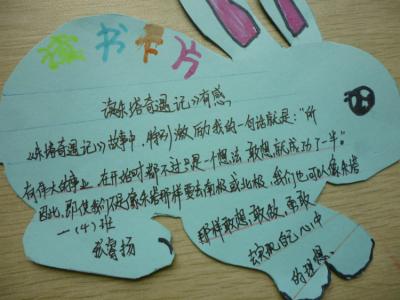 读书卡片
读《朵塔奇遇记》有感
《朵塔奇遇记》故事中，特别激励我的一句话就是："所
有伟大的事业，在开始时都不过只是一个想法，敢想就成功了一半。"
因此，即使我们不是像朵塔那样要去南极或北极，我们也可以像朵塔
那样敢想敢做，勇敢
实现自己心中
的理想。
一(4)班
武睿扬